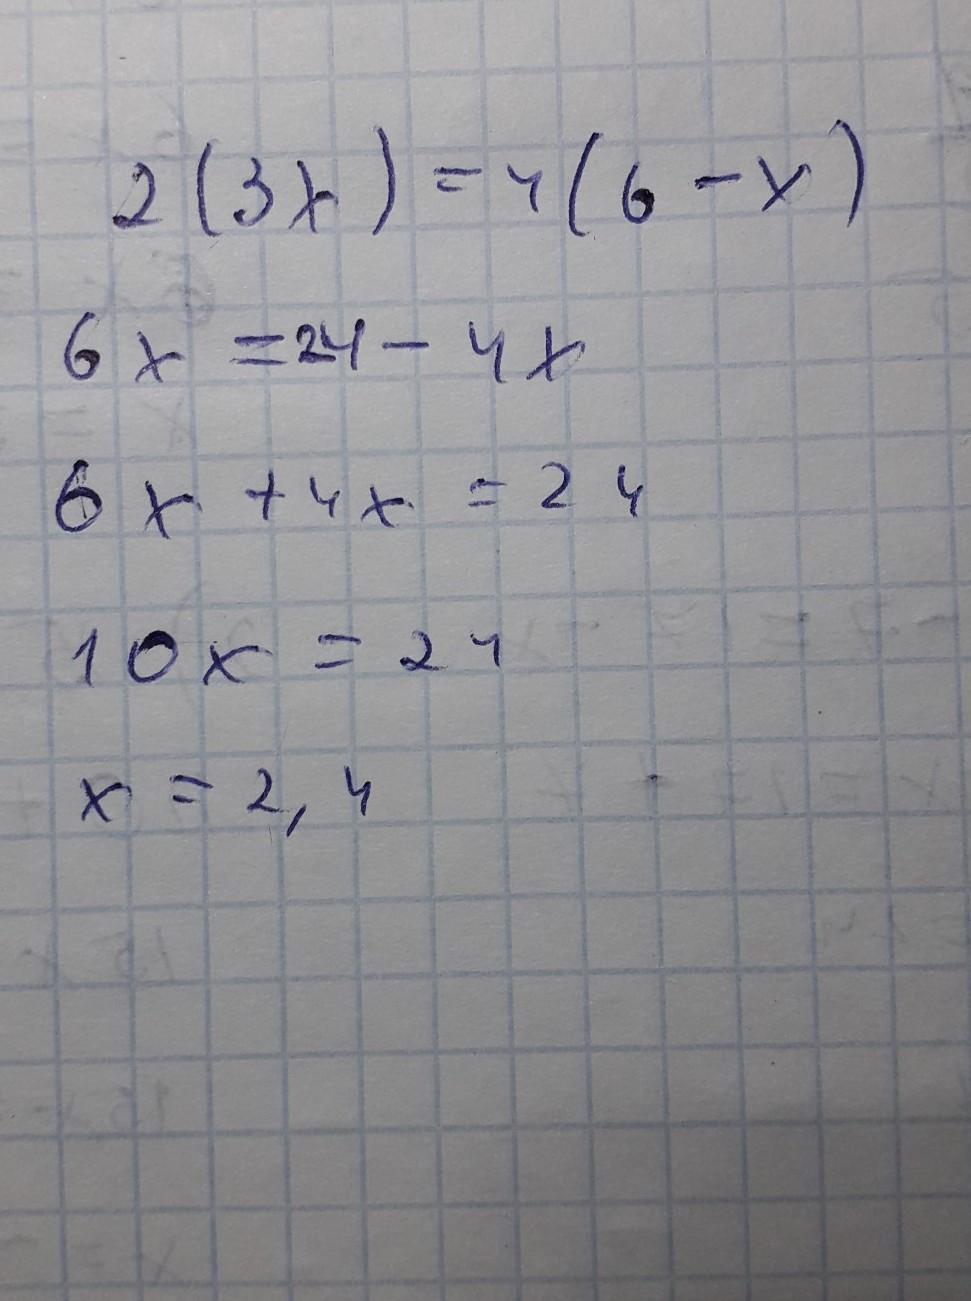 2(3x) = 4(6-x)
6x = 24 - 4x
6x + 4x = 24
10x = 24
x = 2,4